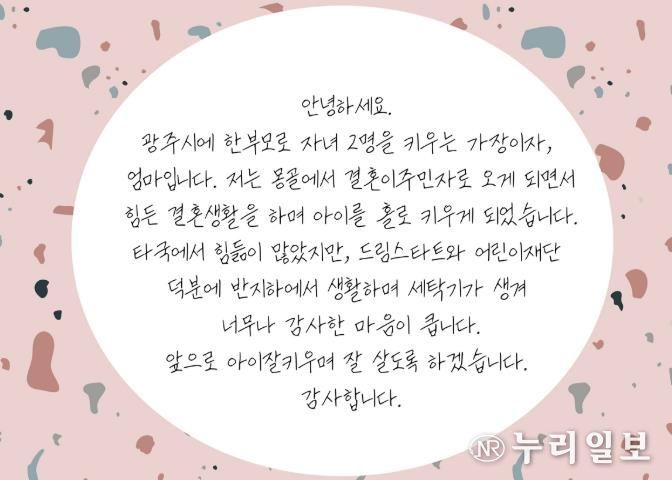 안녕하세요.
광주시에 한부모로 자녀 2명을 키우는 가장이자,
엄마입니다. 저는 몽골에서 결혼이주민자로 오게 되면서
힘든 결혼생활을 하며 아이를 홀로 키우게 되었습니다.
타국에서 힘듦이 많았지만, 드림스타트와 어린이재단
덕분에 반지하에서 생활하며 세탁기가 생겨
너무나 감사한 마음이 큽니다.
앞으로 아이잘키우며 잘 살도록 하겠습니다.
감사합니다.
NR 누리일보